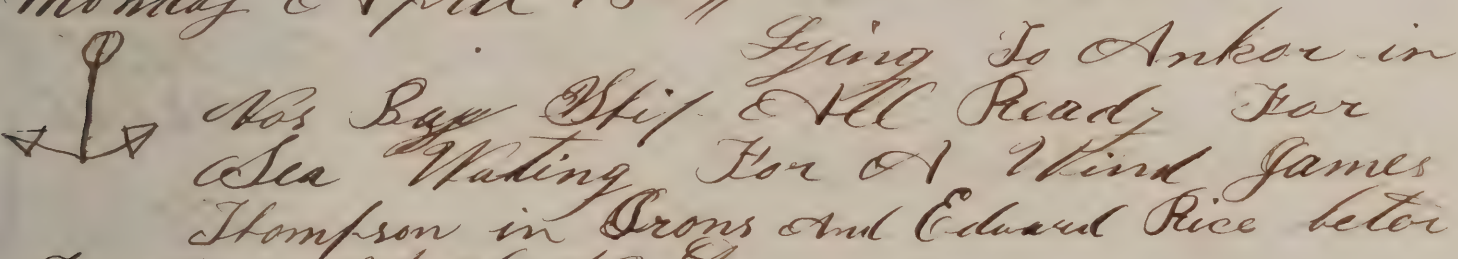 Monday April 15 "
Lying To Ankor in
Vos Bay Ship All Ready For
Sea Wating For A Wind James
Thompson in Irons And Edward Rice betor